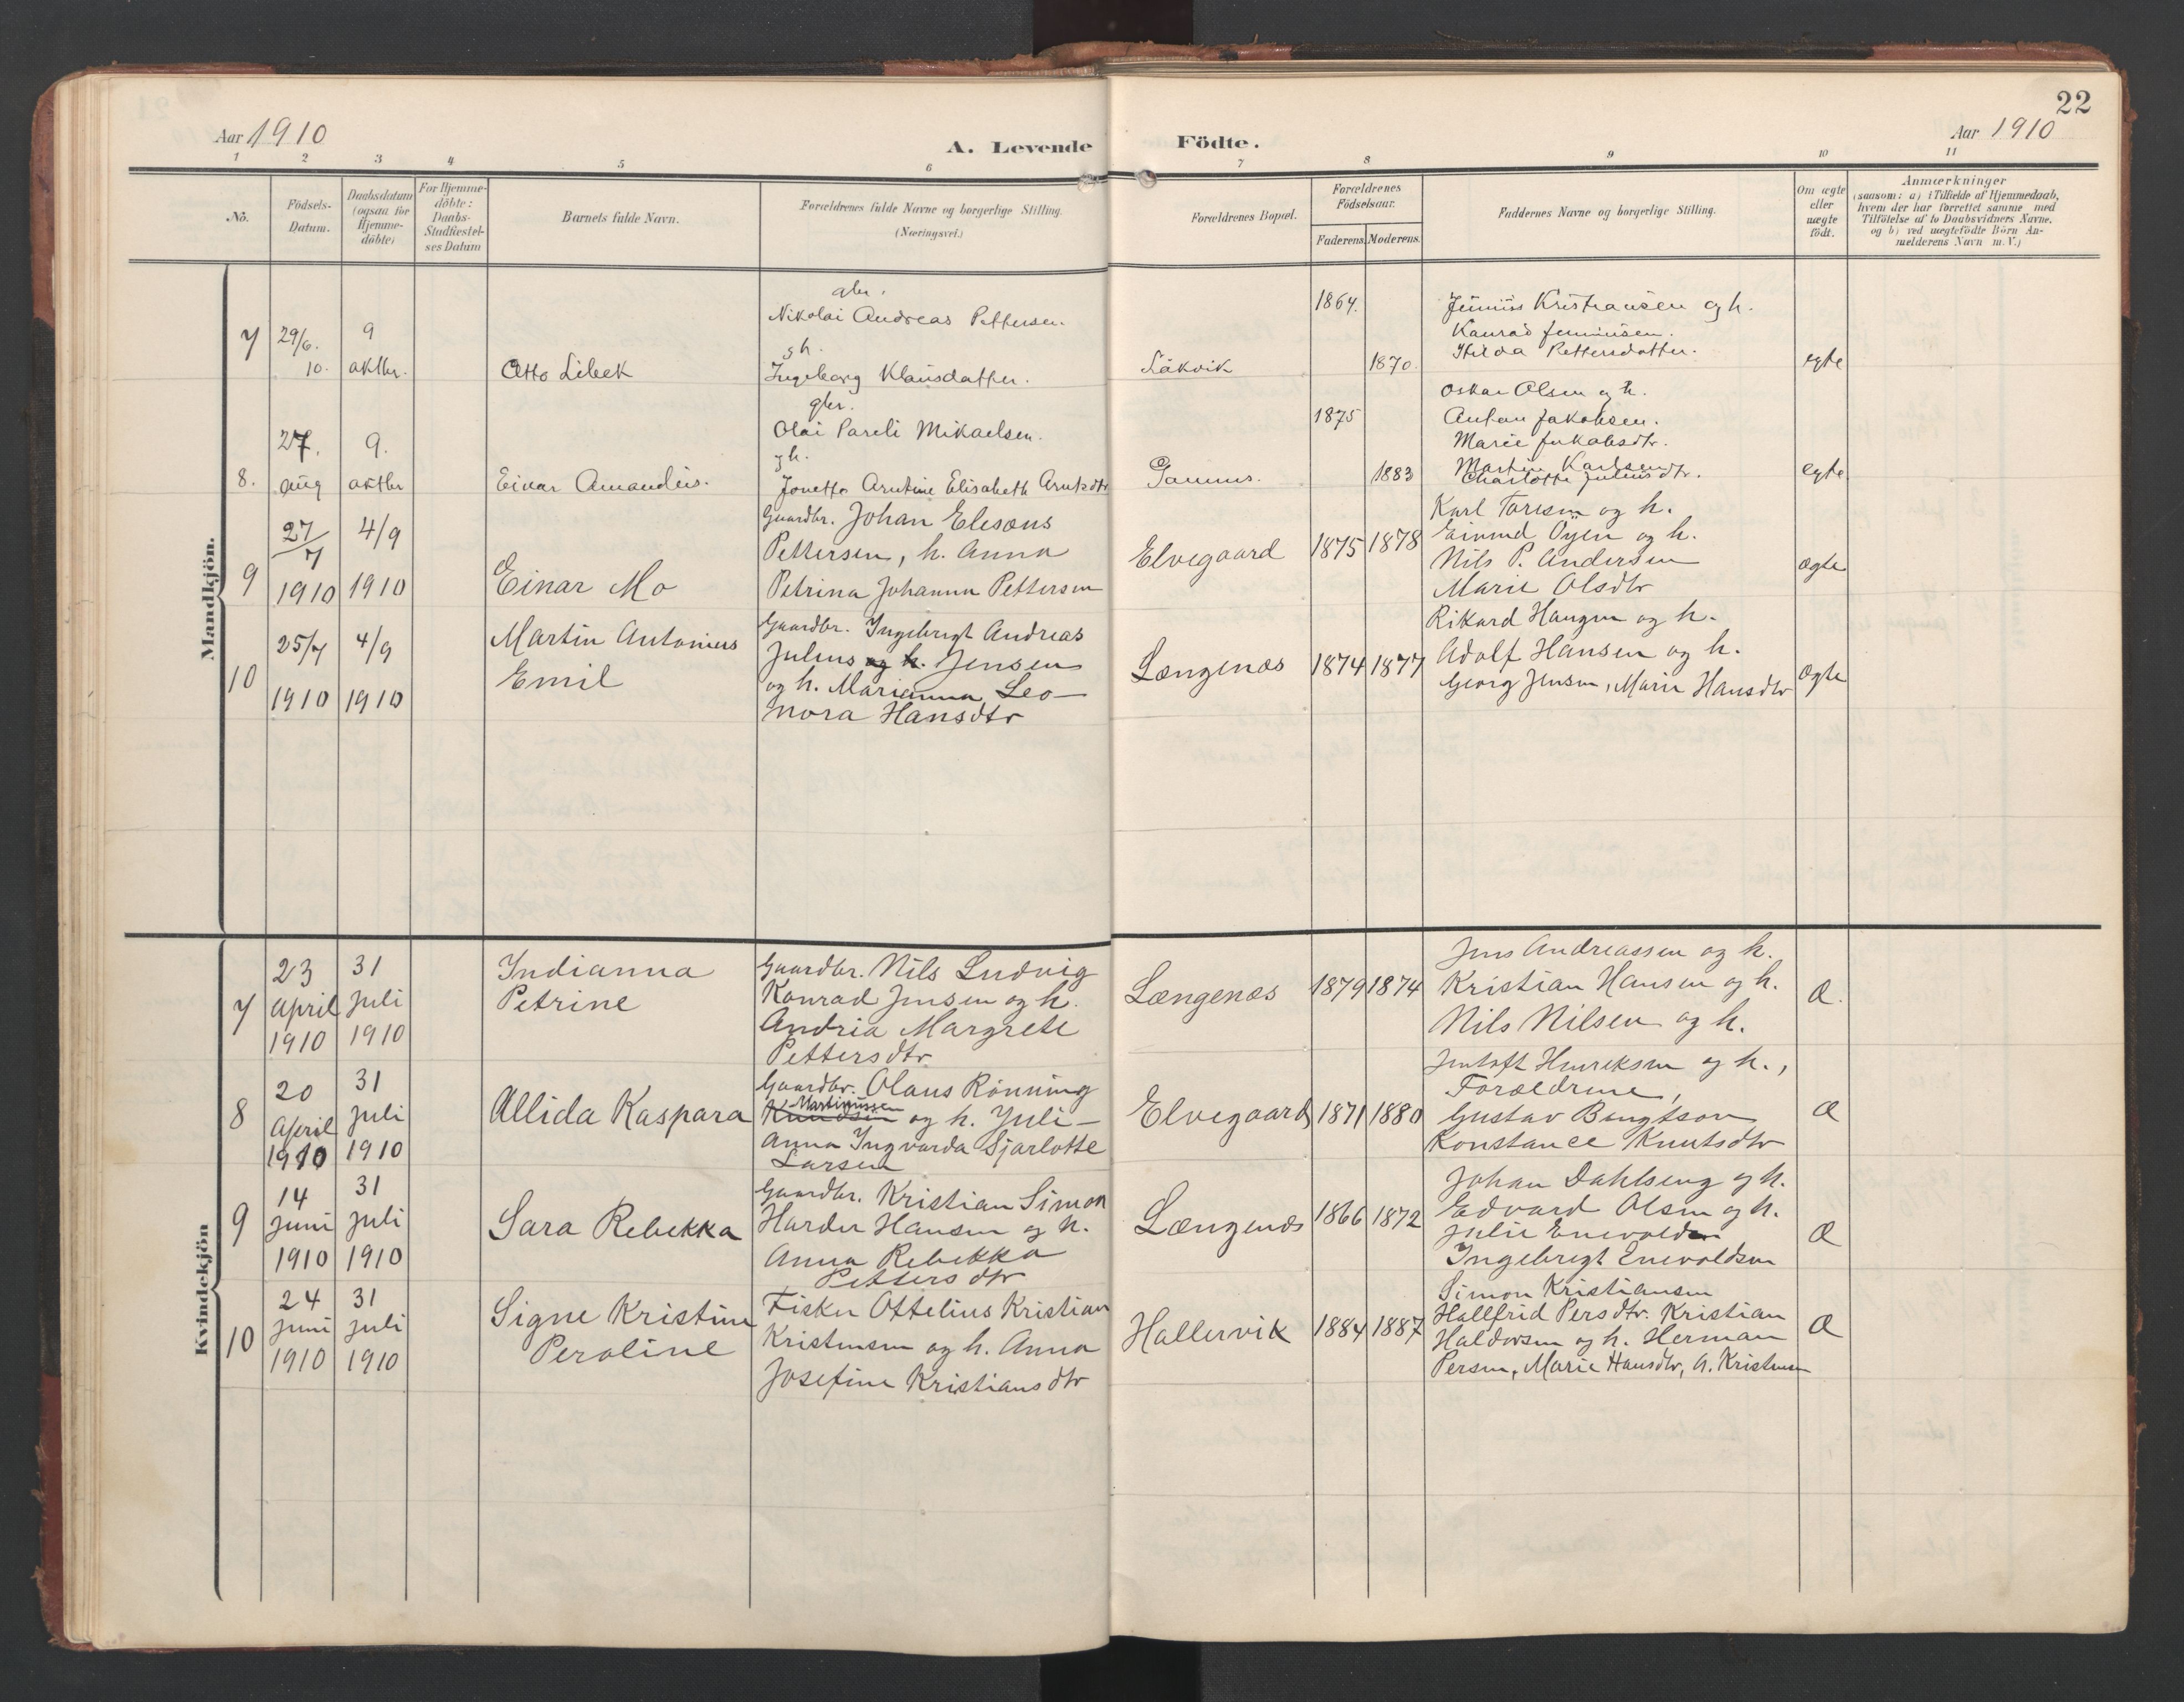 22
Aar 1910
A. Levende Födte.
Aar 1910
1 2 3 4 5 6 7 8 9 10 11
No.
Födsels-
Datum.
Daabsdatum
(ogsaa for
Hjemme-
döbte)
For Hjemme-
döbte:
Daabs-
Stadfæstel-
ses Datum
Barnets fulde Navn.
Forældrenes fulde Navne og borgerlige Stilling.
(Næringsvei.)
Forældrenes Bopæl.
Forældrenes
Födselsaar.
Faderens. Moderens.
Faddernes Navne og borgerlige Stilling.
Om ægte
eller
uægte
födt.
Anmærkninger
(saasom: a) i Tilfælde af Hjemmedaab,
hvem der har forrettet samme med
Tilföielse af to Daabsvidners Navne,
og b) ved uægtefödte Börn An-
melderens Navn m. V.)
Mandkjön.
7
29/6.
10.
9
aktbr.
Otto Libek
gbr.
Nikolai Andreas Pettersen.
gh.
Ingeborg Klausdatter.
Låkvik
1864.
1870.
Kristiansen og h.
Konrad
Hilda Pettersdatter.
egte
8.
27.
aug
9.
aktbr
Einar Amandus.
gbr.
Olai Pareli Mikaelsen.
gh.
Jonette Arntine Elisabeth Arntzdtr
Gammes.
1875
1883
Oskar Olsen og h.
Anton Jakobsen.
Marie Jakobsdtr.
Martin Karlsen
Charlotte Juliusdtr.
egte
9
27/7
1910
4/9
1910
Einar Mo
Gaardbr. Johan Elesæus
Pettersen, h. Anna
Petrina Johanna Pettersen
Elvegaard
1875 1878
Karl Toresen og h.
Eivind Oyen og h.
Nils P. Andersen
Marie Olsdtr
ægte
10
25/7
1910
4/9
1910
Martin Antonius
Emil
Gaardbr. Ingebrigt Andreas
Julius og h. Jensen
og h. Marianna Leo-
nora Hansdtr
Længenæs
1874 1877
Rikard Haugen og h.
Adolf Hansen og h.
Georg Jensen, Marie Hansdtr
ægte
Kvindekjön
7
23
April
1910
31
Juli
1910
Indianna
Petrine
Gaardbr. Nils Ludvig
Konrad Jensen og h.
Andria Margrete
Pettersdtr
Længenæs
1879 1874
Jens Andreassen og h.
Kristian Hansen og h.
Nils Nilsen og h.
Æ.
8
20
April
1910
31
Juli
1910
Allida Kaspara
Gaardbr. Olaus Rönning
Martinussen
Knudsen og h. Juli-
anna Ingvarda Sjarlotte
Larsen
Elvegaard
1871 1880
Jentoft Henriksen og h.,
Forældrene,
Gustav Bengtson
Konstance Knutsdtr
Æ
9
14
Juni
1910
31
Juli
1910
Sara Rebekka
Gaardbr. Kristian Simon
Harder Hansen og h.
Anna Rebekka
Pettersdtr
Længenæs
1866 1872
Johan Dahlseng og h.
Edvard Olsen og h.
Julie Enevoldsen
Ingebrigt Enevoldsen
Æ
10
24
Juni
1910
31
Juli
1910
Signe Kristine
Peroline
Fisker Ottelius Kristian
Kristensen og h. Anna
Josefine Kristiansdtr
Hallervik
1884 1887
Simon Kristiansen
Hallfrid Persdtr. Kristian
Haldorsen og h. Herman
Persen, Marie Hansdtr, A. Kristensen
Æ